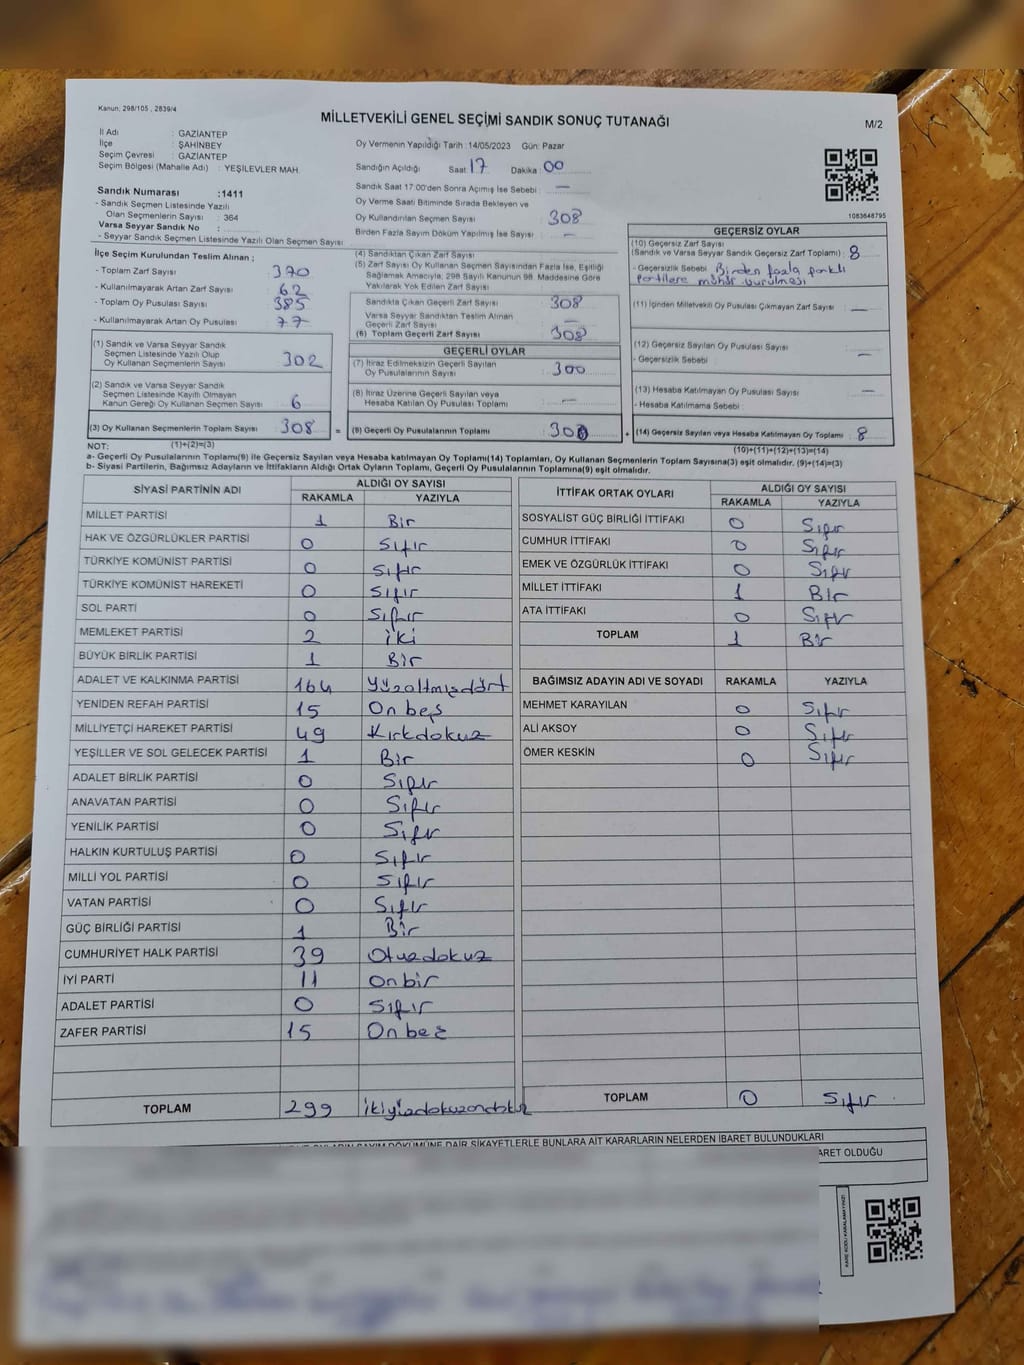 Kanun: 298/105 , 2839/4
MİLLETVEKİLİ GENEL SEÇİMİ SANDIK SONUÇ TUTANAĞI
M/2
İl Adı : GAZİANTEP
İlçe : ŞAHİNBEY
Seçim Çevresi : GAZİANTEP
Seçim Bölgesi (Mahalle Adı) : YEŞİLEVLER MAH.
Sandık Numarası :1411
- Sandık Seçmen Listesinde Yazılı
Olan Seçmenlerin Sayısı : 364
Varsa Seyyar Sandık No :
- Seyyar Sandık Seçmen Listesinde Yazılı Olan Seçmen Sayısı
Oy Vermenin Yapıldığı Tarih :14/05/2023 Gün: Pazar
Sandığın Açıldığı Saat 17 Dakika : 00
Sandık Saat 17:00'den Sonra Açımış İse Sebebi : —
Oy Verme Saati Bitiminde Sırada Bekleyen ve
Oy Kullandırılan Seçmen Sayısı : 308
Birden Fazla Sayım Döküm Yapılmış İse Sayısı : —
1083648795
İlçe Seçim Kurulundan Teslim Alınan ;
- Toplam Zarf Sayısı : 370
- Kullanılmayarak Artan Zarf Sayısı : 62
- Toplam Oy Pusulası Sayısı : 385
- Kullanılmayarak Artan Oy Pusulası : 77
(1) Sandık ve Varsa Seyyar Sandık
Seçmen Listesinde Yazılı Olup
Oy Kullanan Seçmenlerin Sayısı : 302
(2) Sandık ve Varsa Seyyar Sandık
Seçmen Listesinde Kayıtlı Olmayan
Kanun Gereği Oy Kullanan Seçmen Sayısı : 6
(3) Oy Kullanan Seçmenlerin Toplam Sayısı : 308 =
(4) Sandıktan Çıkan Zarf Sayısı :
(5) Zarf Sayısı Oy Kullanan Seçmen Sayısından Fazla İse, Eşitliği
Sağlamak Amacıyla, 298 Sayılı Kanunun 98. Maddesine Göre
Yakılarak Yok Edilen Zarf Sayısı :
Sandıkta Çıkan Geçerli Zarf Sayısı : 308
Varsa Seyyar Sandıktan Teslim Alınan
Geçerli Zarf Sayısı : —
(6) Toplam Geçerli Zarf Sayısı : 308
GEÇERLİ OYLAR
(7) İtiraz Edilmeksizin Geçerli Sayılan
Oy Pusulalarının Sayısı : 300
(8) İtiraz Üzerine Geçerli Sayılan veya
Hesaba Katılan Oy Pusulası Toplamı : —
(9) Geçerli Oy Pusulalarının Toplamı : 300 +
GEÇERSİZ OYLAR
(10) Geçersiz Zarf Sayısı
(Sandık ve Varsa Seyyar Sandık Geçersiz Zarf Toplamı) : 8
- Geçersizlik Sebebi : Birden fazla farklı
partilere mühür vurulması
(11) İçinden Milletvekili Oy Pusulası Çıkmayan Zarf Sayısı : —
(12) Geçersiz Sayılan Oy Pusulası Sayısı : —
- Geçersizlik Sebebi :
(13) Hesaba Katılmayan Oy Pusulası Sayısı : —
- Hesaba Katılmama Sebebi :
(14) Geçersiz Sayılan veya Hesaba Katılmayan Oy Toplamı : 8
NOT: (1)+(2)=(3) (10)+(11)+(12)+(13)=(14)
a- Geçerli Oy Pusulalarının Toplamı(9) ile Geçersiz Sayılan veya Hesaba katılmayan Oy Toplamı(14) Toplamları, Oy Kullanan Seçmenlerin Toplam Sayısına(3) eşit olmalıdır. (9)+(14)=(3)
b- Siyasi Partilerin, Bağımsız Adayların ve İttifakların Aldığı Ortak Oyların Toplamı, Geçerli Oy Pusulalarının Toplamına(9) eşit olmalıdır.
SİYASİ PARTİNİN ADI ALDIĞI OY SAYISI
RAKAMLA YAZIYLA
MİLLET PARTİSİ 1 Bir
HAK VE ÖZGÜRLÜKLER PARTİSİ 0 Sıfır
TÜRKİYE KOMÜNİST PARTİSİ 0 Sıfır
TÜRKİYE KOMÜNİST HAREKETİ 0 Sıfır
SOL PARTİ 0 Sıfır
MEMLEKET PARTİSİ 2 iki
BÜYÜK BİRLİK PARTİSİ 1 Bir
ADALET VE KALKINMA PARTİSİ 164 Yüzaltmışdört
YENİDEN REFAH PARTİSİ 15 On beş
MİLLİYETÇİ HAREKET PARTİSİ 49 Kırkdokuz
YEŞİLLER VE SOL GELECEK PARTİSİ 1 Bir
ADALET BİRLİK PARTİSİ 0 Sıfır
ANAVATAN PARTİSİ 0 Sıfır
YENİLİK PARTİSİ 0 Sıfır
HALKIN KURTULUŞ PARTİSİ 0 Sıfır
MİLLİ YOL PARTİSİ 0 Sıfır
VATAN PARTİSİ 0 Sıfır
GÜÇ BİRLİĞİ PARTİSİ 1 Bir
CUMHURİYET HALK PARTİSİ 39 Otuzdokuz
İYİ PARTİ 11 onbir
ADALET PARTİSİ 0 Sıfır
ZAFER PARTİSİ 15 On beş
TOPLAM 299 ikiyüzdokuzandokuz
İTTİFAK ORTAK OYLARI ALDIĞI OY SAYISI
RAKAMLA YAZIYLA
SOSYALİST GÜÇ BİRLİĞİ İTTİFAKI 0 Sıfır
CUMHUR İTTİFAKI 0 Sıfır
EMEK VE ÖZGÜRLÜK İTTİFAKI 0 Sıfır
MİLLET İTTİFAKI 1 Bir
ATA İTTİFAKI 0 Sıfır
TOPLAM 1 Bir
BAĞIMSIZ ADAYIN ADI VE SOYADI RAKAMLA YAZIYLA
MEHMET KARAYILAN 0 Sıfır
ALİ AKSOY 0 Sıfır
ÖMER KESKİN 0 Sıfır
TOPLAM 0 Sıfır
SAYIM DÖKÜMÜNE DAİR ŞİKAYETLERLE BUNLARA AİT KARARLARIN NELERDEN İBARET BULUNDUKLARI
OLDUĞU
KARE KODU KARALAMAYINIZ!